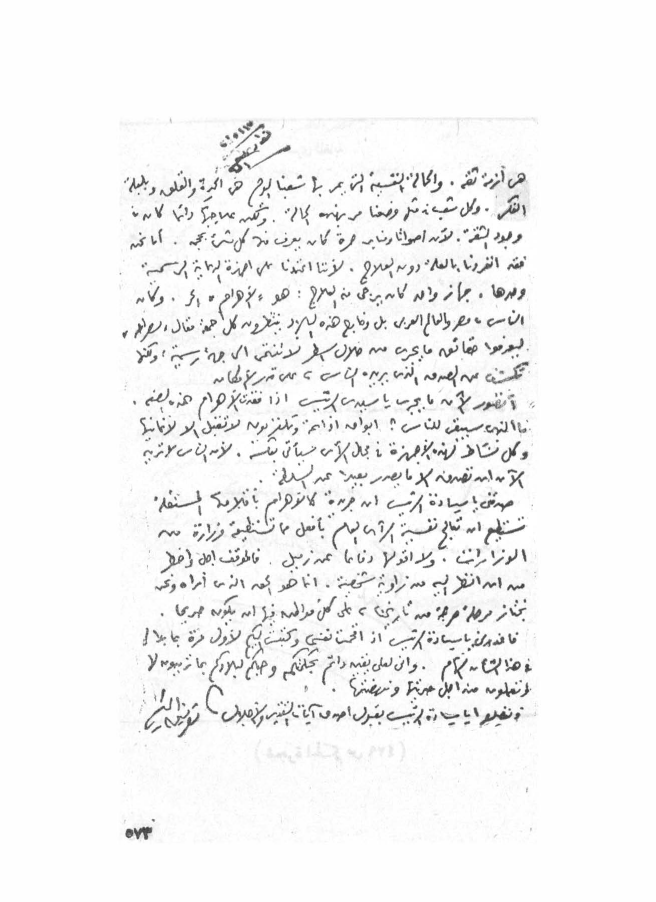 هى أزمة ثقة . والحالة النفسية التى يمر بها شعبنا اليوم هى الحيرة والقلق وبلبلة
الفكر . وكل شعب فى مثل وضعنا مر بهذه الحالة . ولكن علاجها دائما كان فى
وجود الثقة . لأن أصواتا ومنابر حرة كان يعرف منها كل شىء بحجمه . أما نحن
فقد انفردنا بالعلة دون العلاج . لأننا اعتمدنا على أجهزة الدعاية الرسمية
وحدها . جهاز واحد كان يرجى منه العلاج : هو "الأهرام" الحر . وكان
الناس فى مصر والعالم العربى بل وخارج هذه البلاد ينتظرون كل جمعة مقال "بصراحة"
ليعرفوا حقائق ما يجرى من خلال أسطر لا تنتمى الى جهة رسمية ، ولكنها
تكشف عن الصدق الذى يريده الناس على قدر الامكان
أتتصور الآن ما يجرى يا سيدى الرئيس اذا فقدت الأهرام هذه الصفة .
ما الذى سيبقى للناس ؟ أبواق اذاعة وتلفزيون لا تقبل الا لأغانيها
وكل نشاط لهذه الأجهزة فى مجال الرأى سيأتى بعكسه . لأن الناس لا تريد
الآن أن تصدق الا ما يصدر بعيدا عن السلطة .
صدقنى يا سيادة الرئيس ان جريدة كالأهرام بأقلامها المستقلة
تستطيع أن تعالج نفسية الرأى العام بأفضل مما تستطيعه وزارة من
الوزارات . ولا أقولها دفاعا عن زميل . فالموقف أجل وأخطر
من أن أنظر اليه من زاوية شخصية . انما هو الحق الذى أراه ونحن
نجتاز مرحلة حرجة من تاريخنا على كل مواطن فيها أن يكون صريحا .
فاعذرنى يا سيادة الرئيس اذ أقحمت نفسى وكتبت اليكم لأول مرة بما بدا لى
فى هذا الشأن العام . وانى لعلى يقين دائم بحكمتكم وحبكم لبلادكم بما تريدونه لا
وتعملون من أجل حريتها ونهضتها .
وتفضلوا يا سيادة الرئيس بقبول أصدق آيات التقدير والاجلال
توفيق الحكيم
٥٧٣